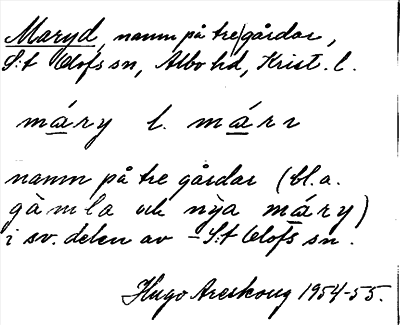 Maryd, namn på tre gårdar,
S:t Olofs sn, Albo hd, Krist. l.
máry l. márɩ
namn på tre gårdar (bl.a.
gàmla och nỳa máry)
i sv. delen av S:t Olofs sn.
Hugo Areskoug 1954-55.